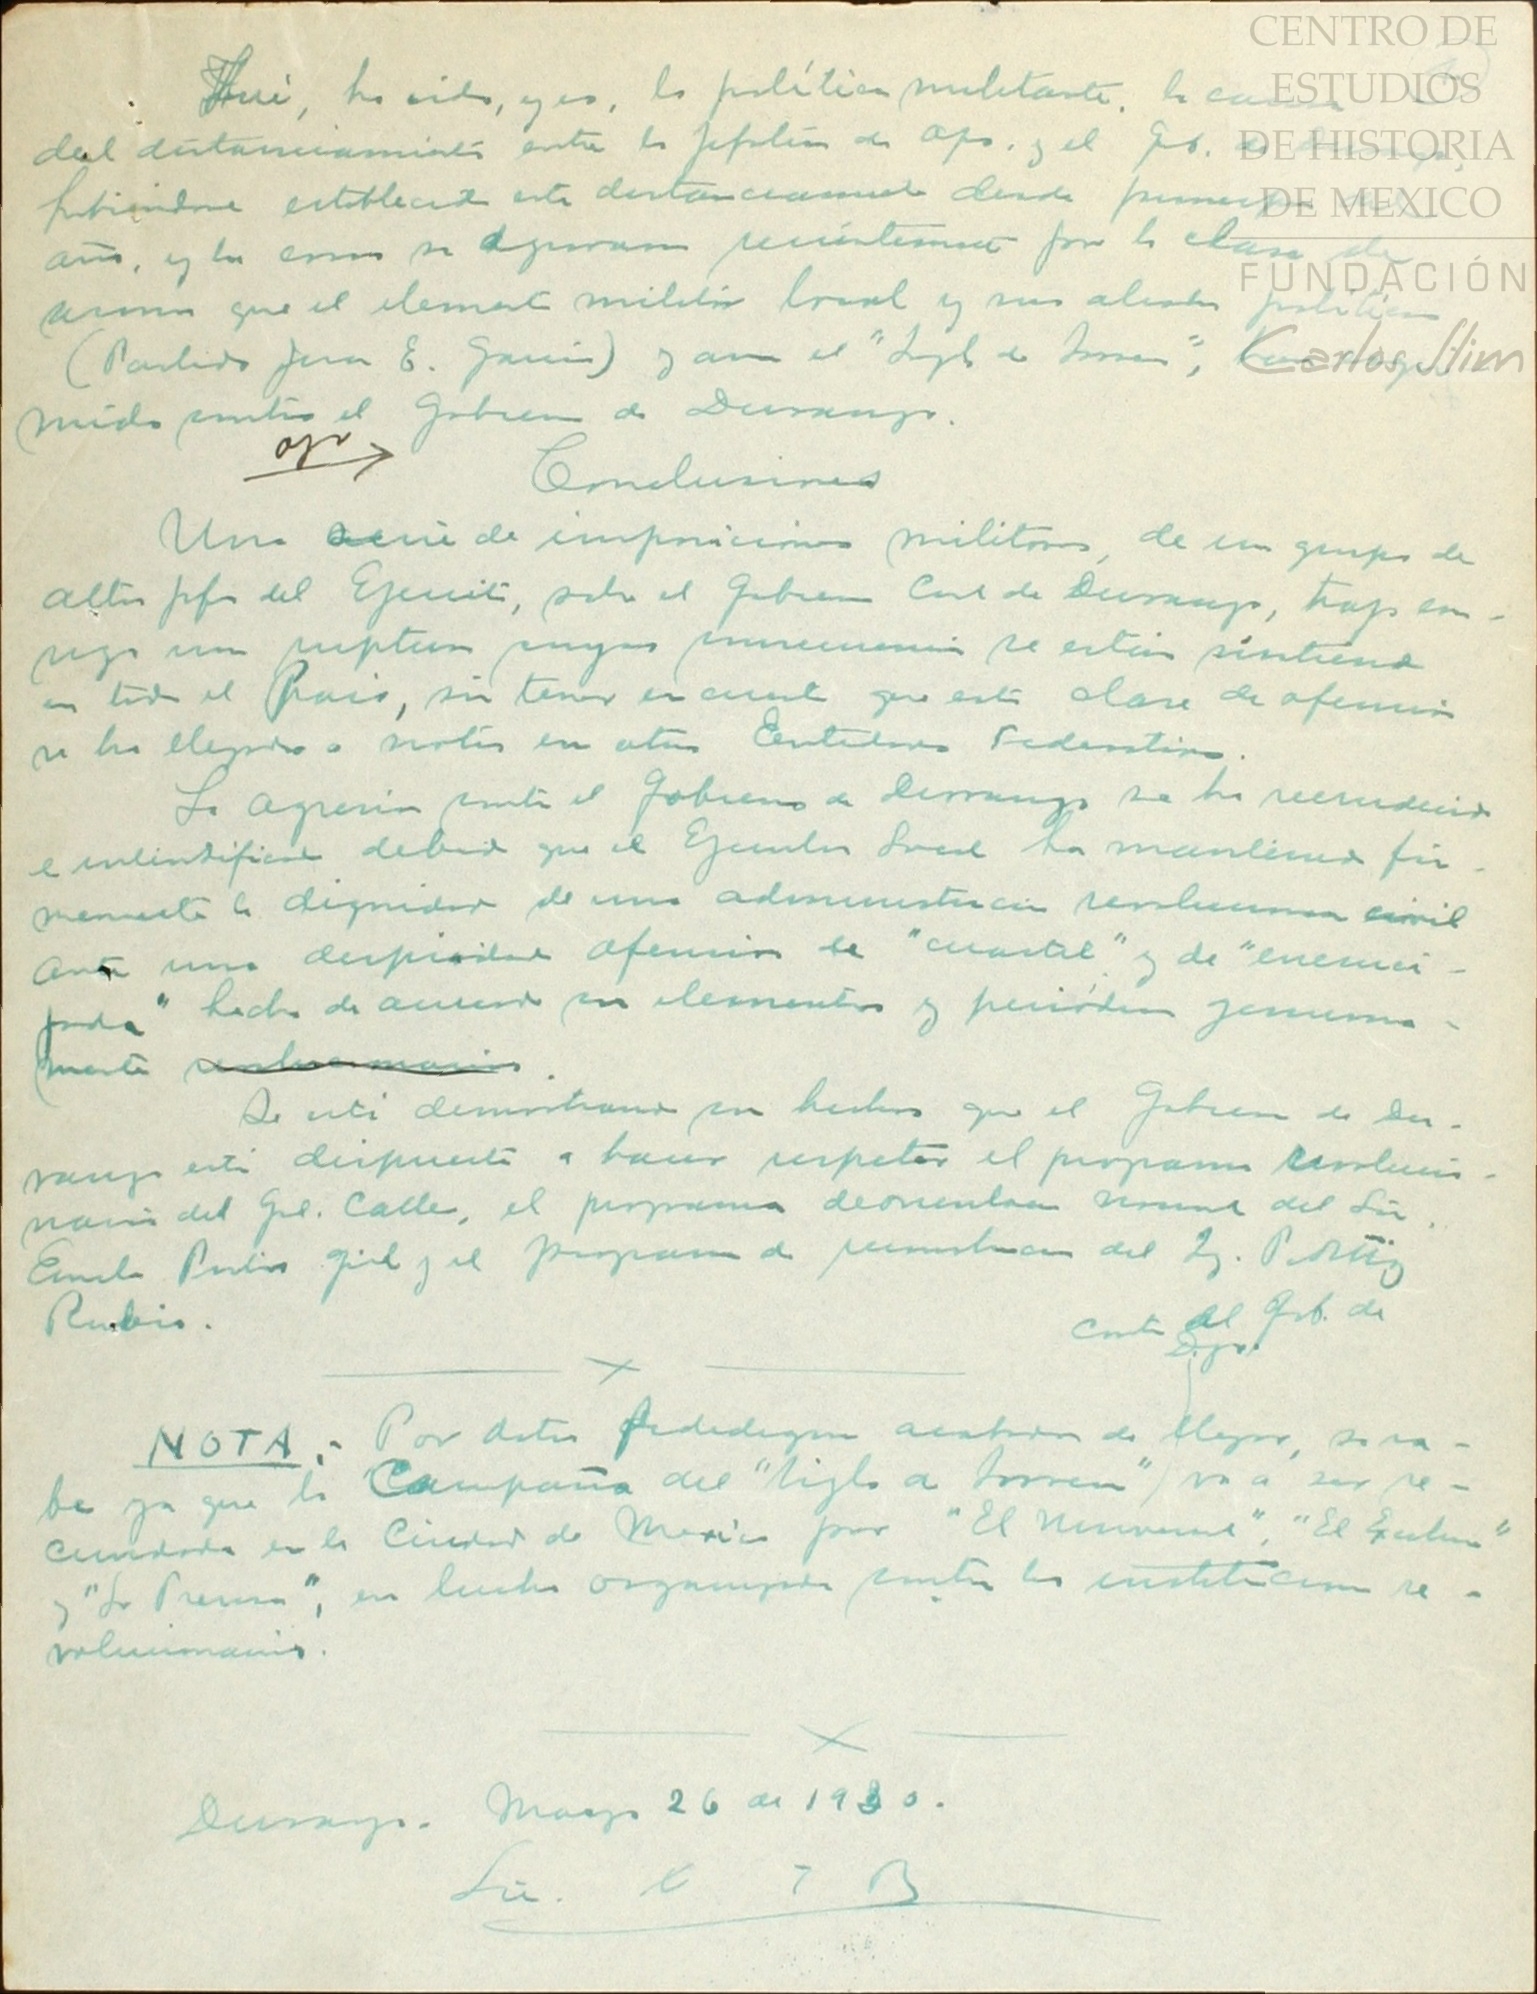 Fué, ha sido, y es, la política militante, la causa
del distanciamiento entre la Jefatura de Ops. y el Gob. de
habiéndose establecido este distanciamiento desde principios del
año, y las cosas se agravaron recientemente por la clase de
armas que el elemento militar local y sus aliados políticos
(Partido Juan E. García) y aun el "Siglo de Torreon", han
mido contra el Gobierno de Durango.
ojo
Conclusiones
Una serie de imposiciones militares, de un grupo de
altos jefes del Ejercito, sobre el Gobierno Civil de Durango, trajo con-
sigo una ruptura cuyas consecuencias se están sintiendo
en todo el Pais, sin tener en cuenta que esta clase de ofensiva
se ha llegado a sentir en otras Entidades Federativas.
La agresión contra el Gobierno de Durango se ha recrudecido
e intensificado debido que el Ejecutivo Local ha mantenido fir-
memente la dignidad de una administracion revolucionaria civil
ante una despiadada ofensiva de "cuartel" y de "encruci-
jada" hecha de acuerdo con elementos y periódicos
mente revolucionarios.
Se está demostrando con hechos que el Gobierno de Du-
rango está dispuesto a hacer respetar el programa revolucio-
nario del Gral. Calles, el programa de orientacion social del Lic.
Emilio Portes Gil y el programa de reconstruccion del Ing. P. Ortiz
Rubio.
contra el Gob. de
Dgo.
NOTA.- Por datos fidedignos acabados de llegar, se sa-
be ya que la Campaña del "Siglo de Torreon" va a ser se-
cundada en la Ciudad de Mexico por "El Universal", "El Excelsior"
y "La Prensa", en lucha organizada contra las instituciones re-
volucionarias.
Durango. Mayo 26 de 1930.
Lic.
CENTRO DE
ESTUDIOS
DE HISTORIA
DE MEXICO
FUNDACIÓN
Carlos Slim